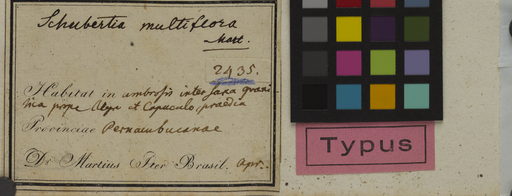 Schubertia multiflora
Mart.
2435.
Habitat in umbrosis inter saxa grani-
tica prope et praedia
Provinciae Pernambucanae
Dr. Martius Iter Brasil. Apr.
Typus